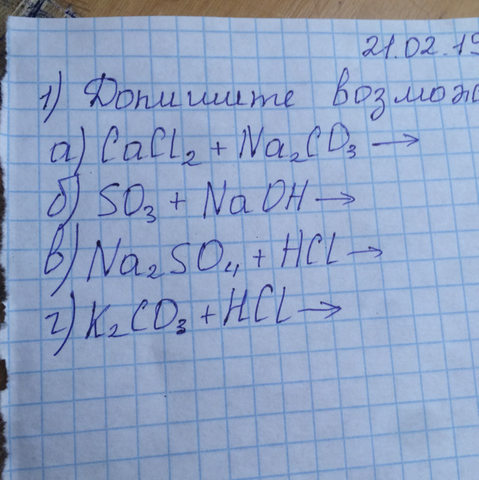 21.02.19
1) Допишите возмож
а) CaCl₂ + Na₂CO₃ →
б) SO₃ + NaOH →
в) Na₂SO₄ + HCl →
г) K₂CO₃ + HCl →